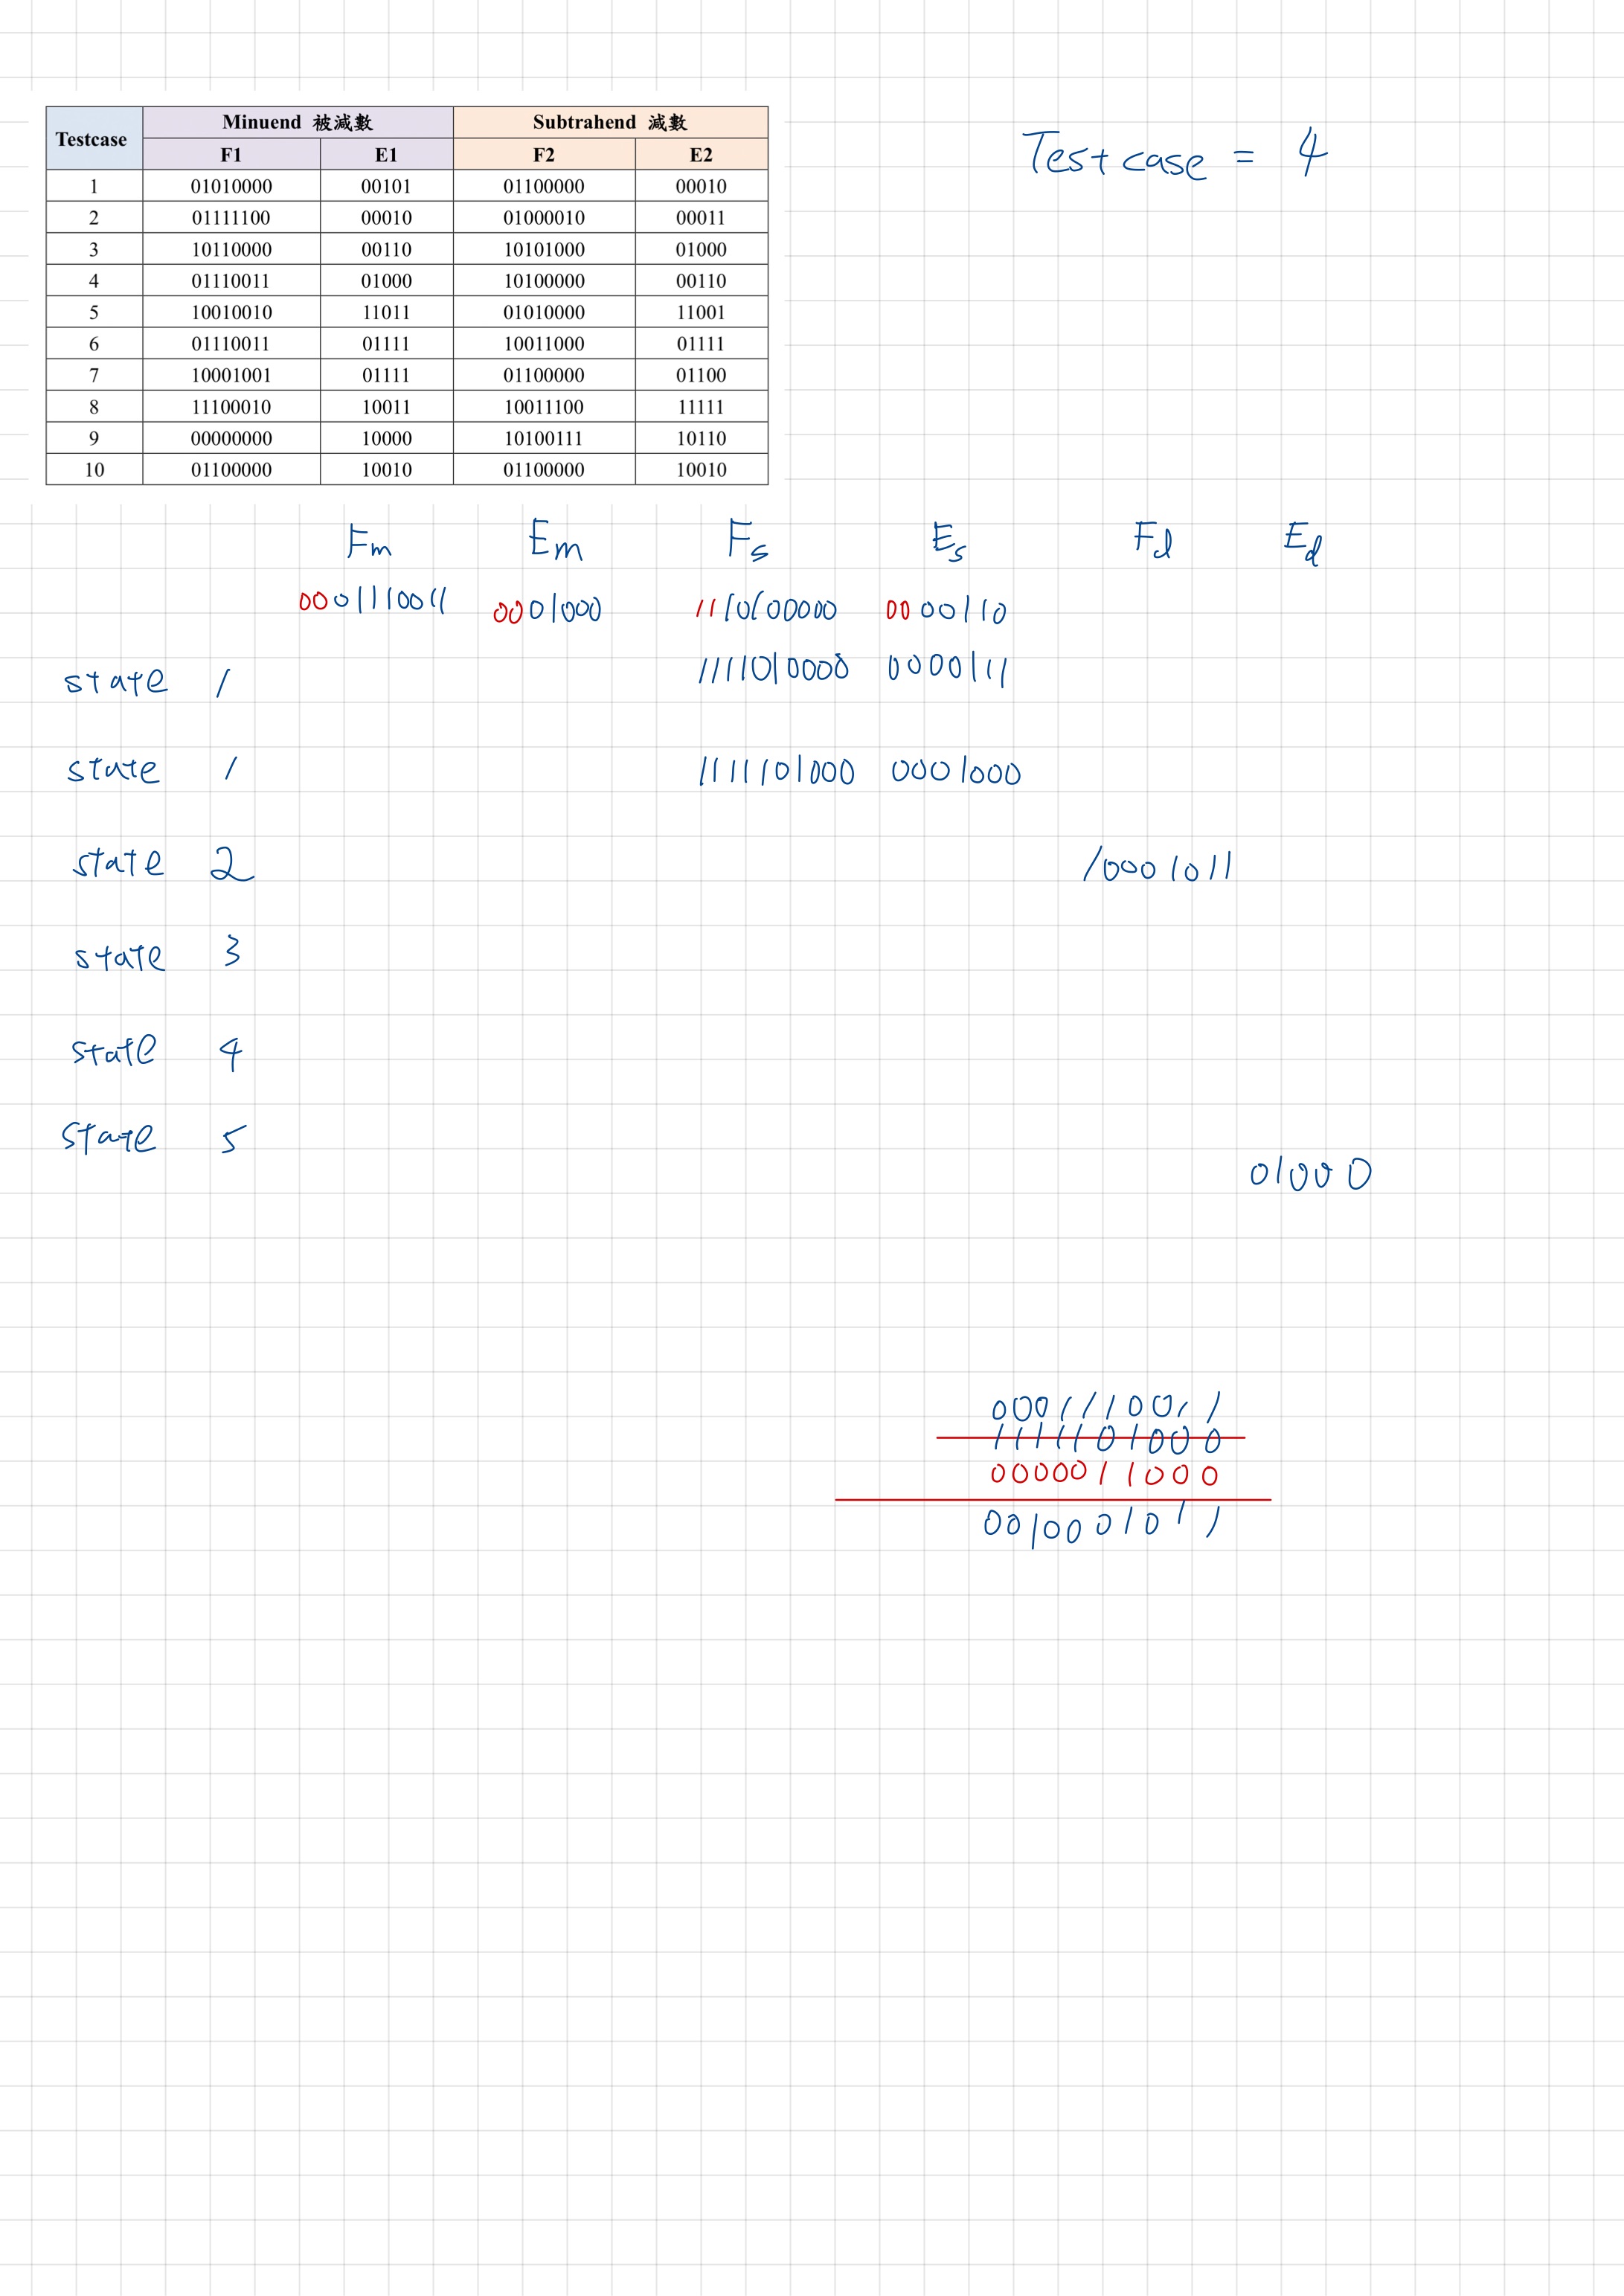 Testcase = 4
Testcase Minuend 被減數 Subtrahend 減數
F1 E1 F2 E2
1 01010000 00101 01100000 00010
2 01111100 00010 01000010 00011
3 10110000 00110 10101000 01000
4 01110011 01000 10100000 00110
5 10010010 11011 01010000 11001
6 01110011 01111 10011000 01111
7 10001001 01111 01100000 01100
8 11100010 10011 10011100 11111
9 00000000 10000 10100111 10110
10 01100000 10010 01100000 10010
Fm Em Fs Es Fd Ed
0001110011 0001000 1110100000 0000110
state 1 1111010000 0000111
state 1 1111101000 0001000
state 2 10001011
state 3
state 4
state 5
01000
0001110011
1111101000
0000011000
0010001011